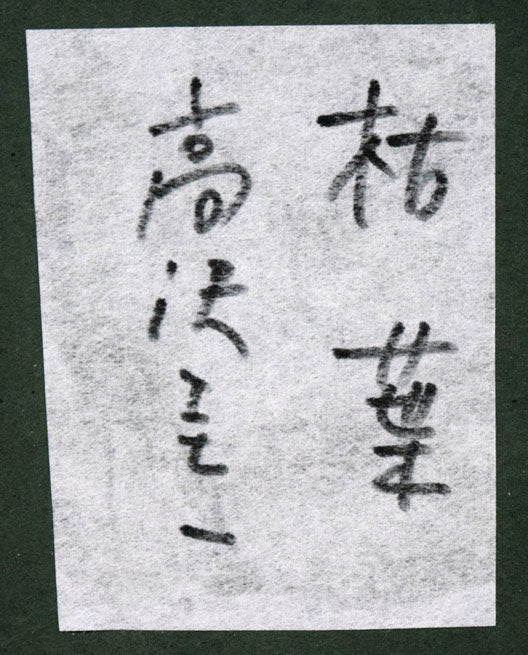 枯葉
高沢圭一